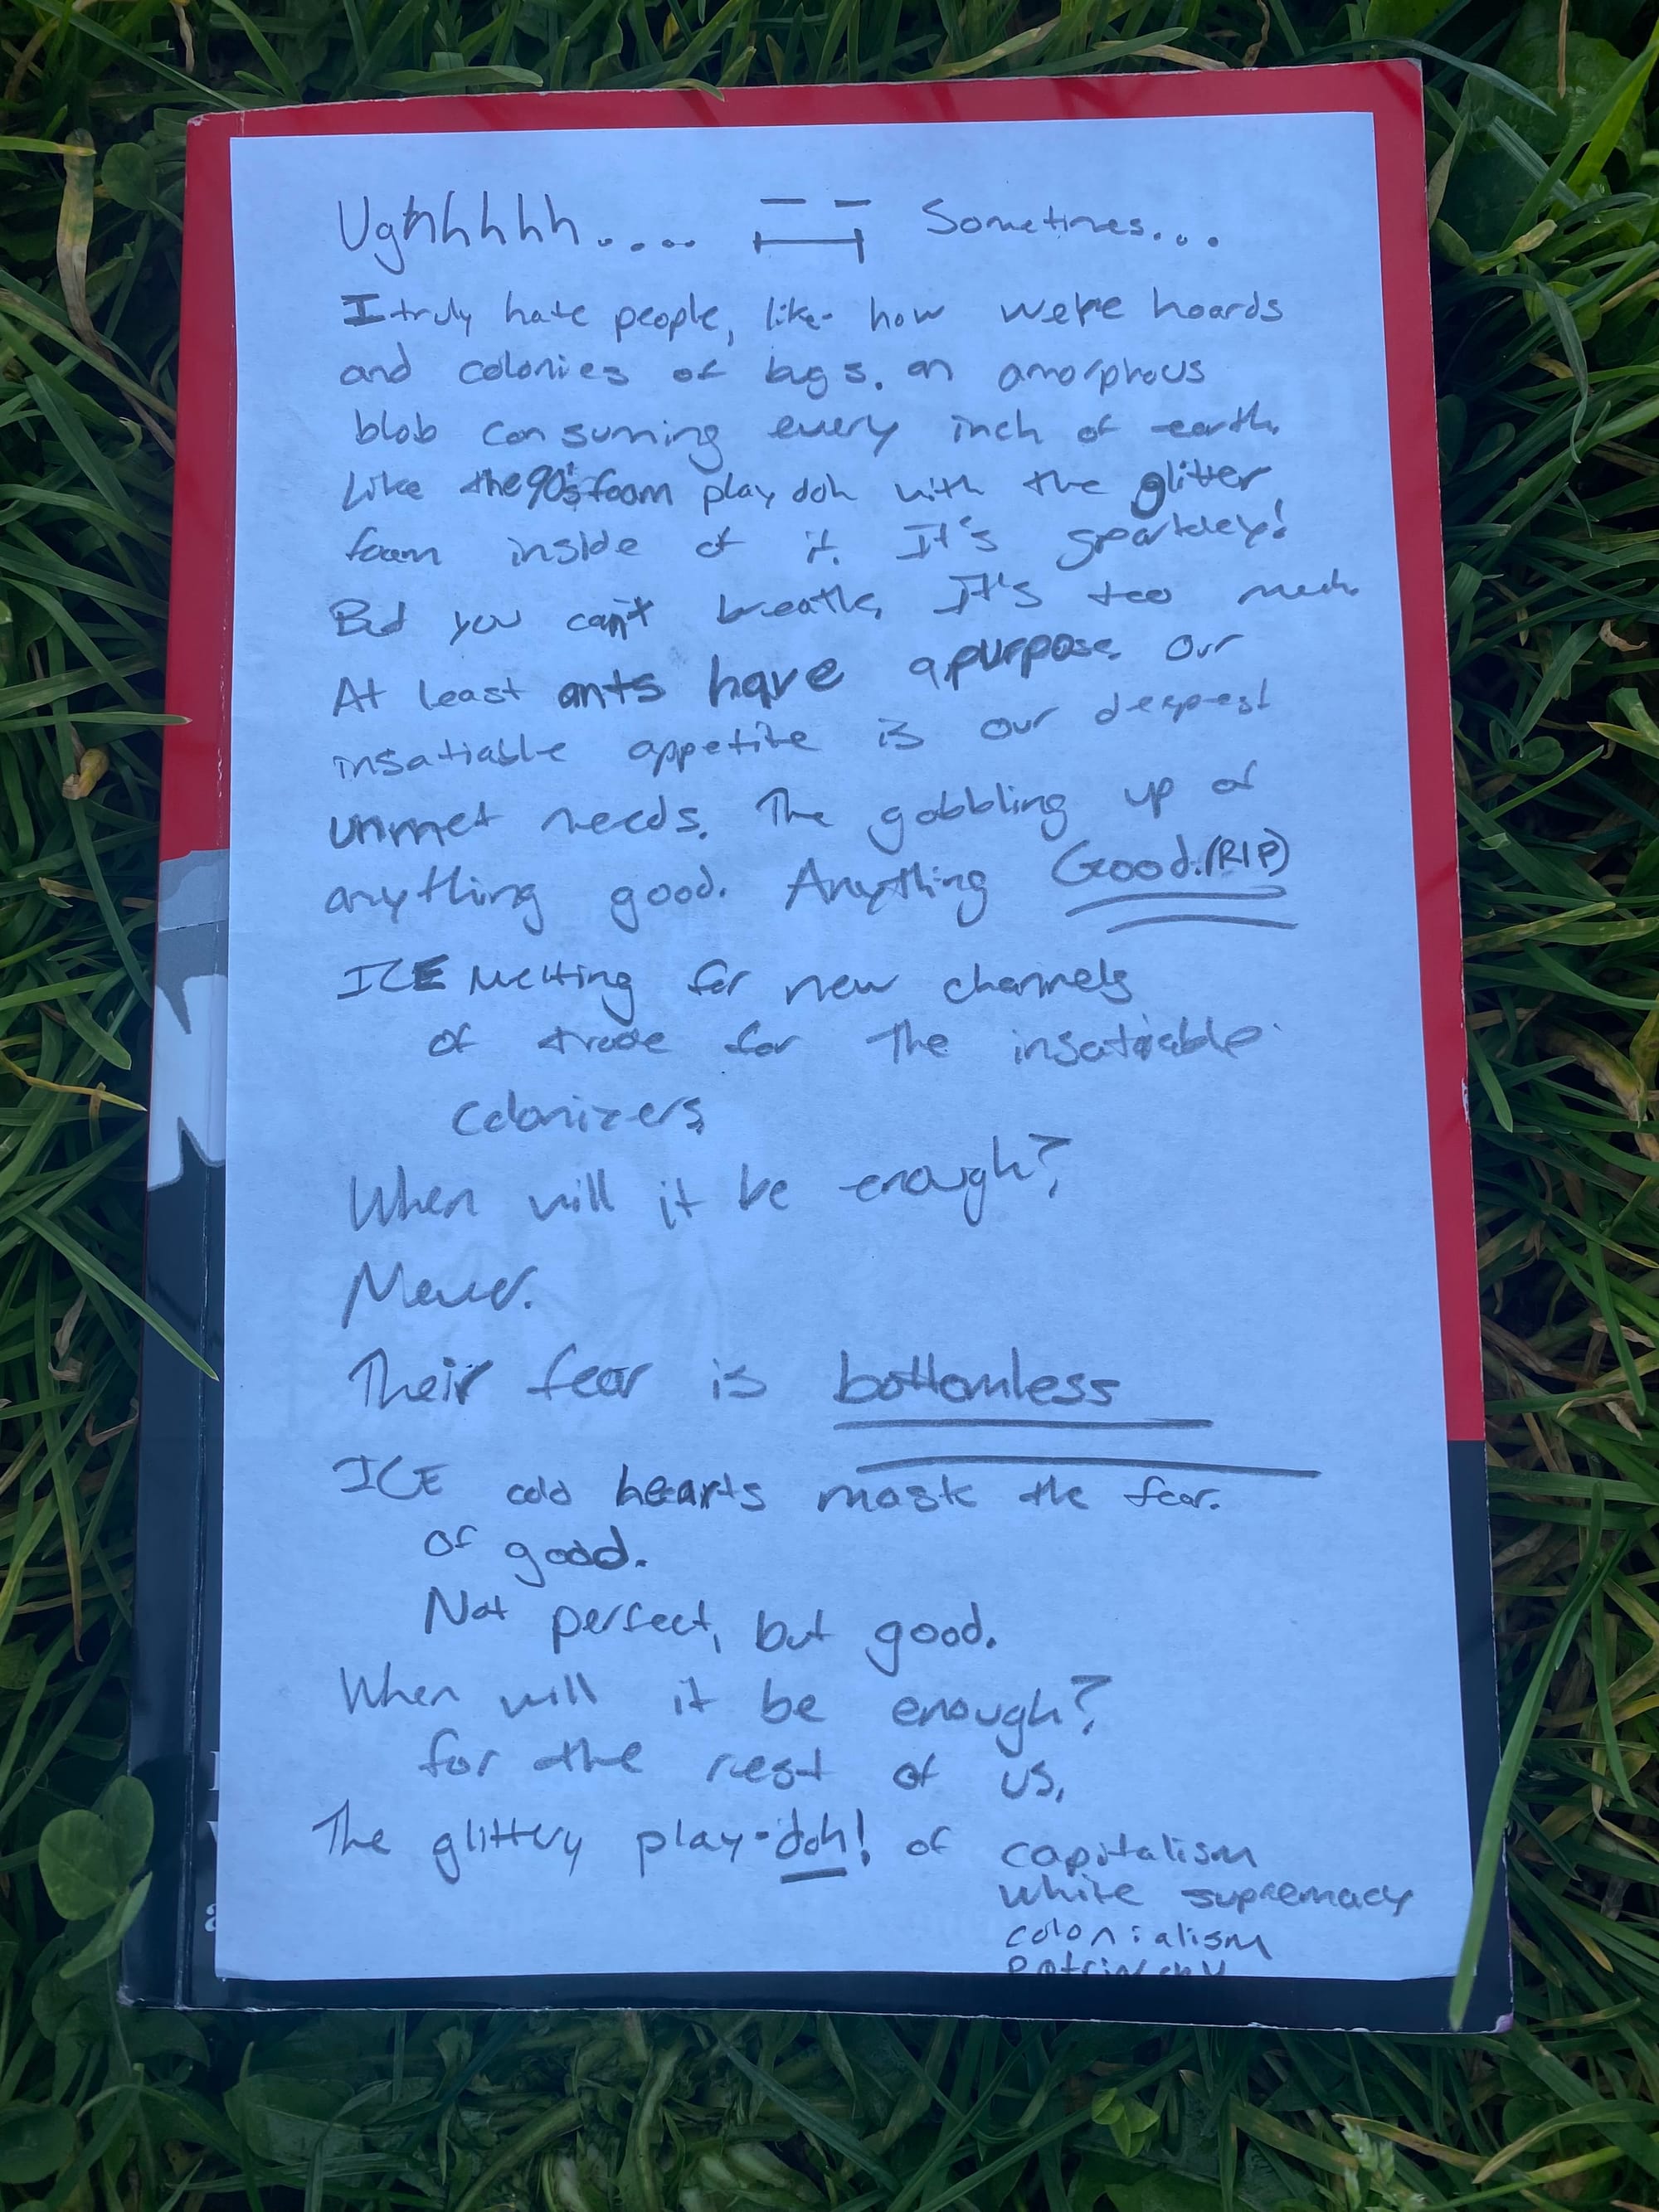 Ughhhhhh.... Sometimes...
I truly hate people, like how we're hoards
and colonies of bugs. an amorphous
blob consuming every inch of earth.
Like the 90's foam play doh with the glitter
foam inside of it. It's sparkley!
But you can't breathe, It's too much.
At least ants have a purpose. Our
insatiable appetite is our deepest
unmet needs. The gobbling up of
anything good. Anything Good. (RIP)
ICE Melting for new channels
of trade for the insatiable
colonizers
When will it be enough?
Never.
Their fear is bottomless
ICE cold hearts mask the fear.
of good.
Not perfect, but good.
When will it be enough?
for the rest of us.
The glittery play-doh! of capitalism
white supremacy
colonialism